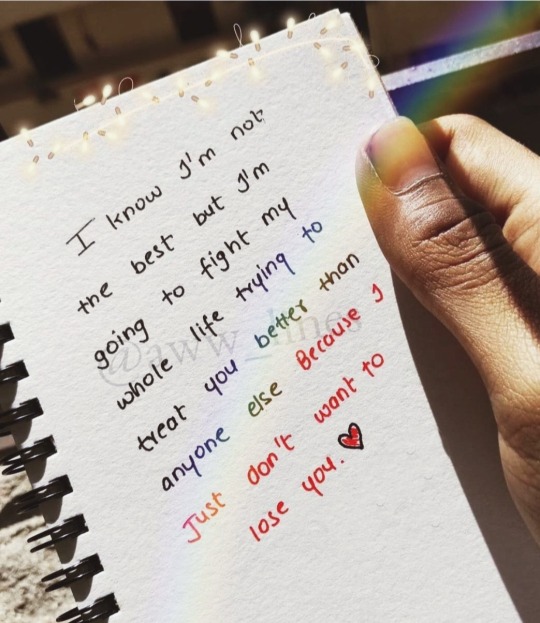 I know I'm not
the best but I'm
going to fight my
whole life trying to
treat you better than
anyone else Because I
Just don't want to
lose you.
@aww_lines